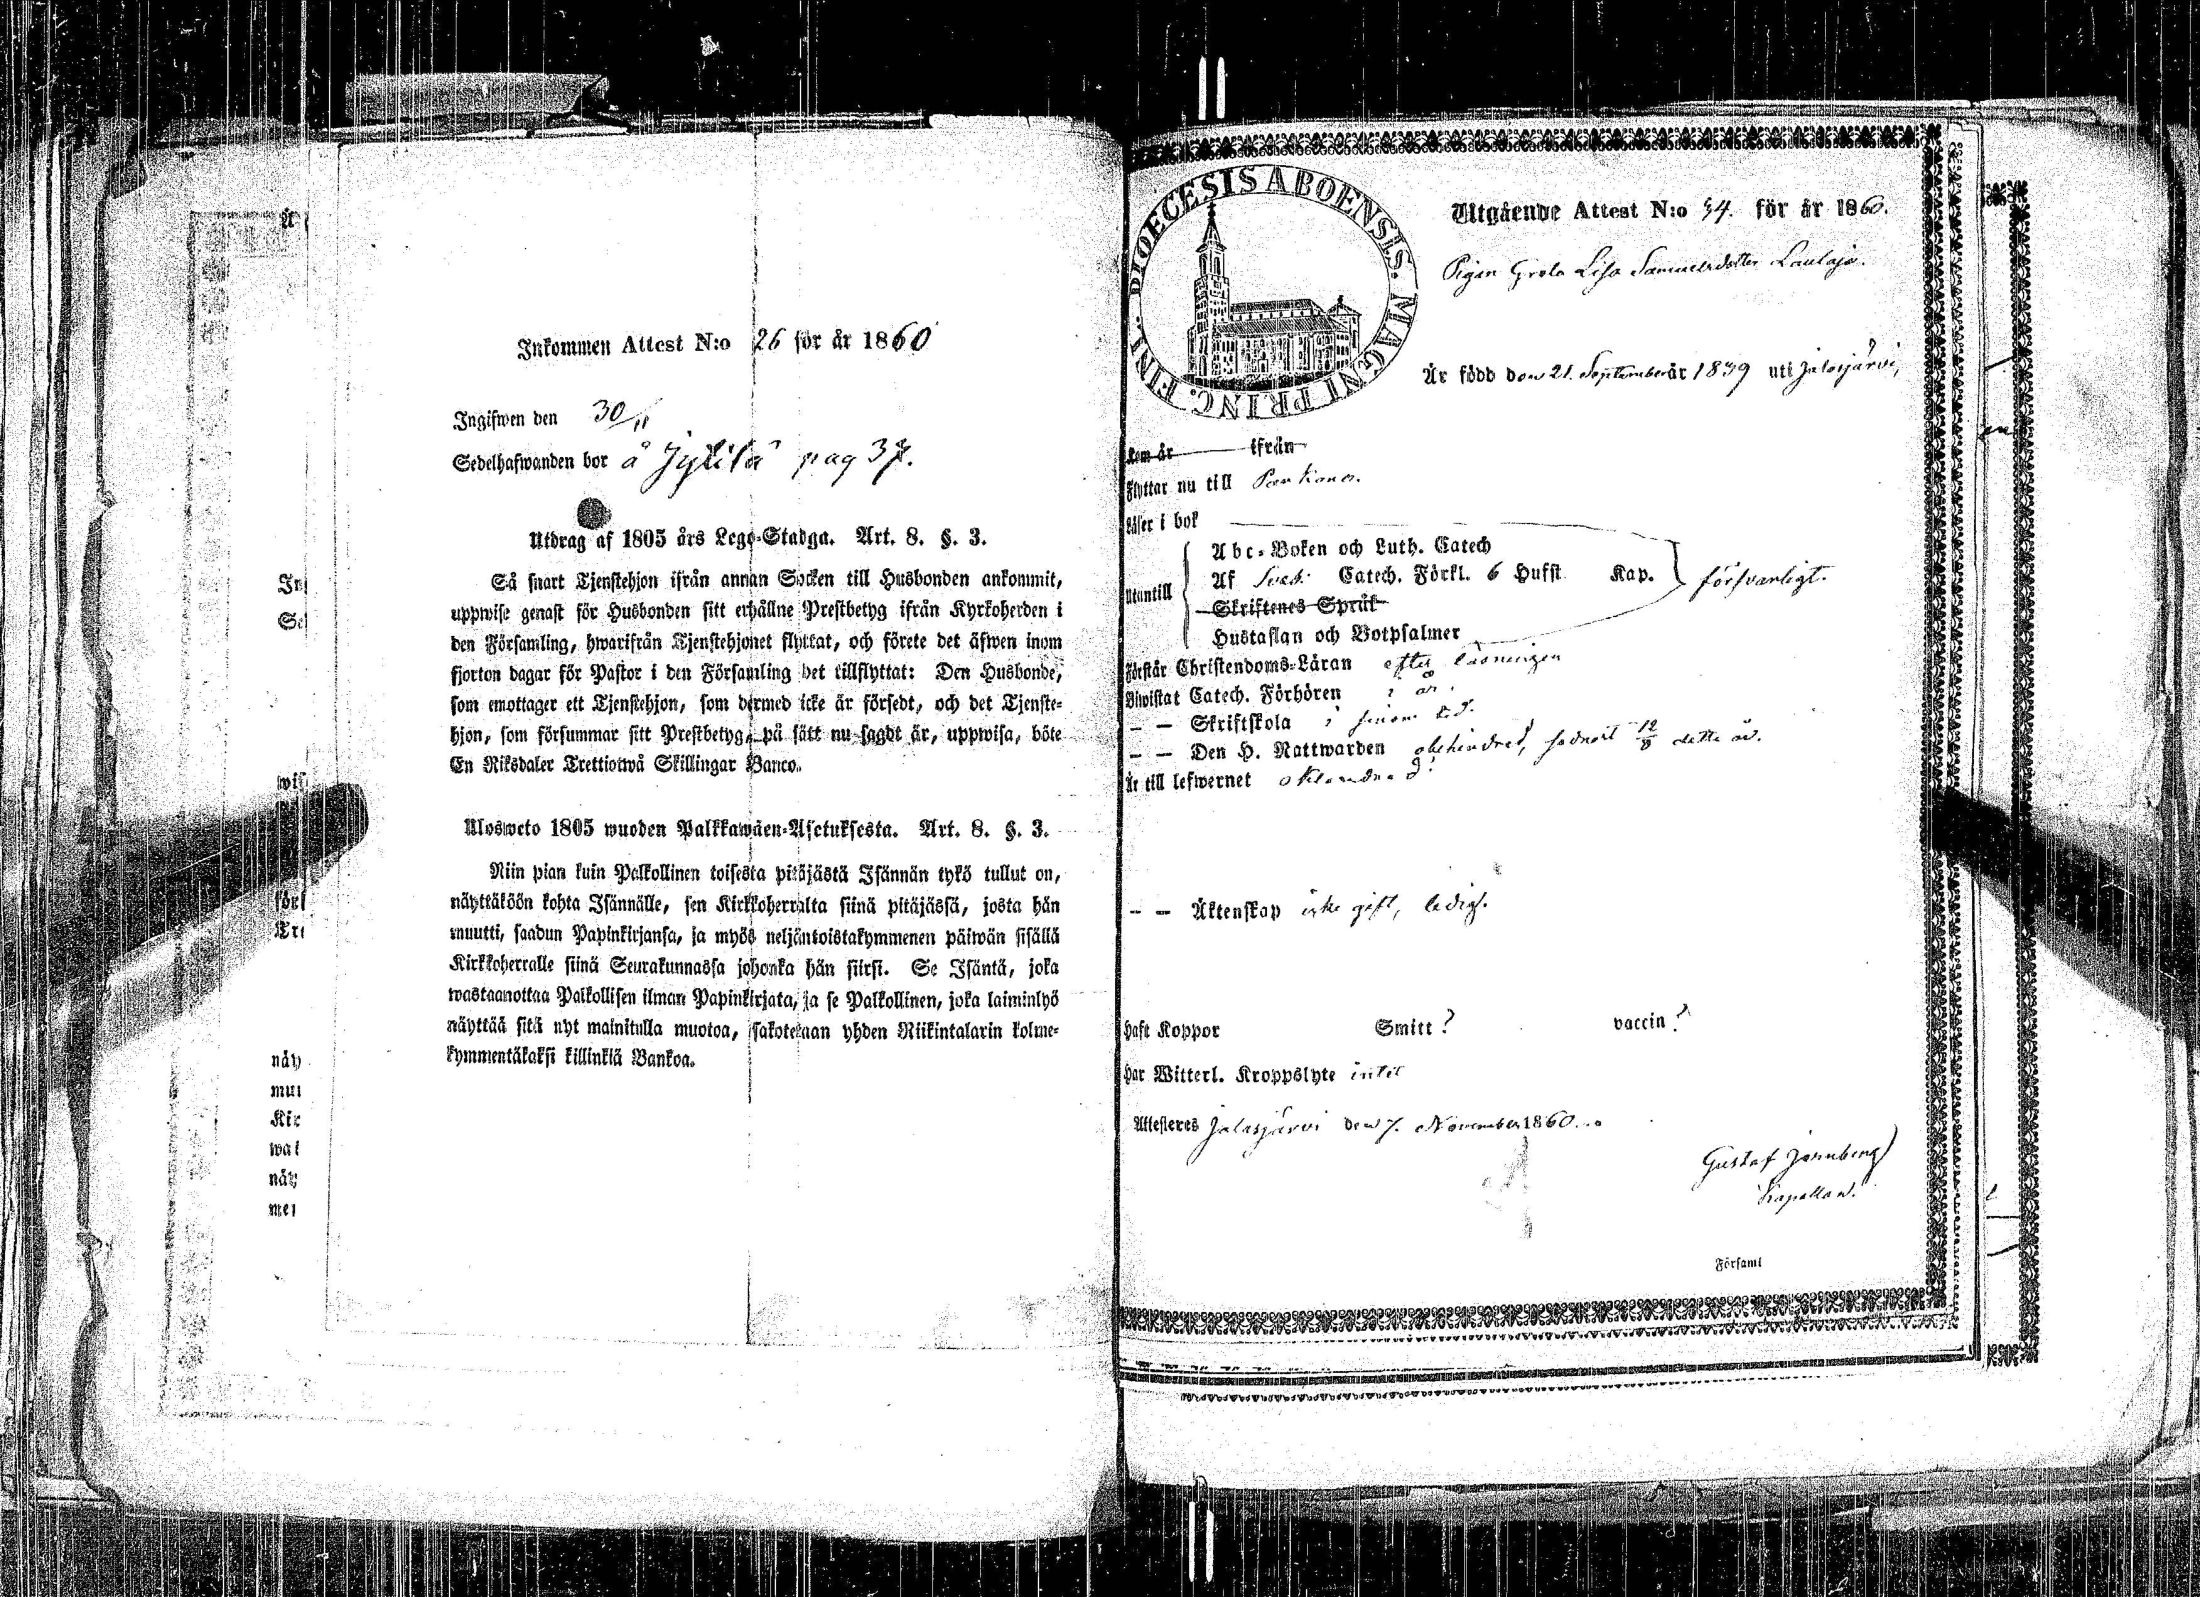 Inkommen Attest N:o 26 för år 1860
Ingifwen den 30/11
Sedelhafwanden bor å Jylilä pag 37.
Utdrag af 1805 års Lego-Stadga. Art. 8. §. 3.
Så snart Tjenstehjon ifrån annan Socken till Husbonden ankommit,
uppwise genast för Husbonden sitt erhållne Prestbetyg ifrån Kyrkoherden i
den Församling, hwarifrån Tjenstehjonet flyttat, och förete det äfwen inom
fjorton dagar för Pastor i den Församling det tillflyttat: Den Husbonde,
som emottager ett Tjenstehjon, som dermed icke är försedt, och det Tjenste-
hjon, som försummar sitt Prestbetyg, på sätt nu sagdt är, uppwisa, böte
En Riksdaler Trettiotwå Skillingar Banco.
Ulosweto 1805 wuoden Palkkawäen-Asetuksesta. Art. 8. §. 3.
Niin pian kuin Palkollinen toisesta pitäjästä Isännän tykö tullut on,
näyttäköön kohta Isännälle, sen Kirkkoherralta siinä pitäjässä, josta hän
muutti, saadun Papinkirjansa, ja myös neljäntoistakymmenen päiwän sisällä
Kirkkoherralle siinä Seurakunnassa johonka hän siirsi. Se Isäntä, joka
wastaanottaa Palkollisen ilman Papinkirjata, ja se Palkollinen, joka laiminlyö
näyttää sitä nyt mainitulla muotoa, sakotetaan yhden Riikintalarin kolme-
kymmentäkaksi killinkiä Bankoa.
DIOECESIS ABOENSIS. MAGNI PRINC. FINL.
Utgående Attest N:o 54. för år 1860.
Pigan Greta Lisa Samuelsdotter Laulaja.
Är född den 21. September år 1839 uti Jalasjärvi,
kom år ifrån
Flyttar nu till Parkano.
Läser i bok
Abc-Boken och Luth. Catech
Utantill Af Sveb. Catech. Förkl. 6 Hufst Kap. försvarligt.
Skriftenes Språk
Hustaflan och Botpsalmer
Förstår Christendoms-Läran efter läsningen
Biwistat Catech. Förhören i år.
— — Skriftskola i sinom tid.
— — Den H. Nattwarden obehindrad, sednast 12/8 detta år.
Är till lefwernet oklandrad.
— — Äktenskap icke gift, ledig.
Haft Koppor Smitt? vaccin?
Har Witterl. Kroppslyte intet
Attesteras Jalasjärvi den 7. November 1860.
Gustaf Jernberg
Kapellan.
Församl